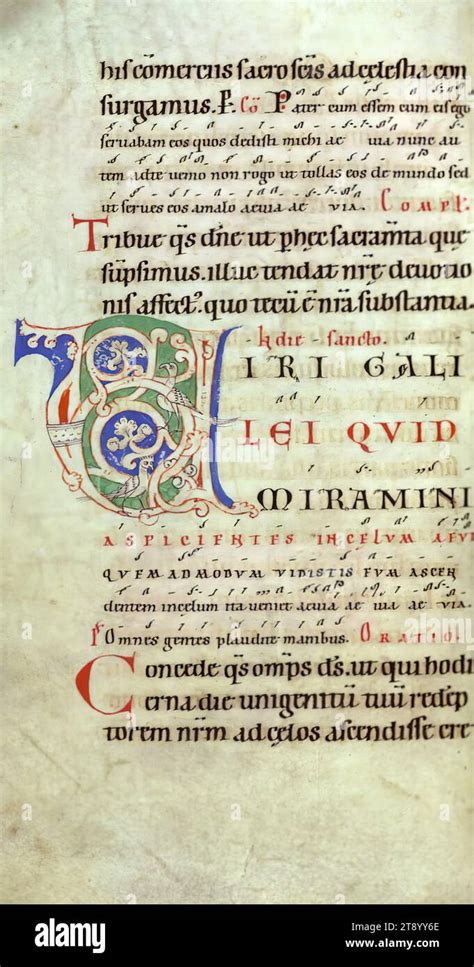 his cōmerciis sacroscīs ad celestia con
surgamus. F. Cō Pater cum essem cum eis ego
servabam eos quos dedisti michi ae uia nunc au
tem ad te uenio non rogo ut tollas eos de mundo sed
ut serves eos a malo aevia ae via. Compl.
Tribue qs dne ut p hec sacramta que
sūpsimus. illuc tendat nrē devotio
nis affect. quo tecū ē nrā substantia.
die sancto.
VIRI GALI
LEI QVID
MIRAMINI
ASPICIENTES IN CELVM AEVI
QVEM AD MODVM VIDISTIS EVM ASCEN
dentem in celum ita veniet aevia ae uia ae via.
P Omnes gentes plaudite manibus. Oratio
Concede qs omps ds. ut qui hodi
erna die unigenitū tuū redēp
torem nrm ad celos ascendisse cre
alamy
alamy
Image ID: 2T8YY6E
www.alamy.com